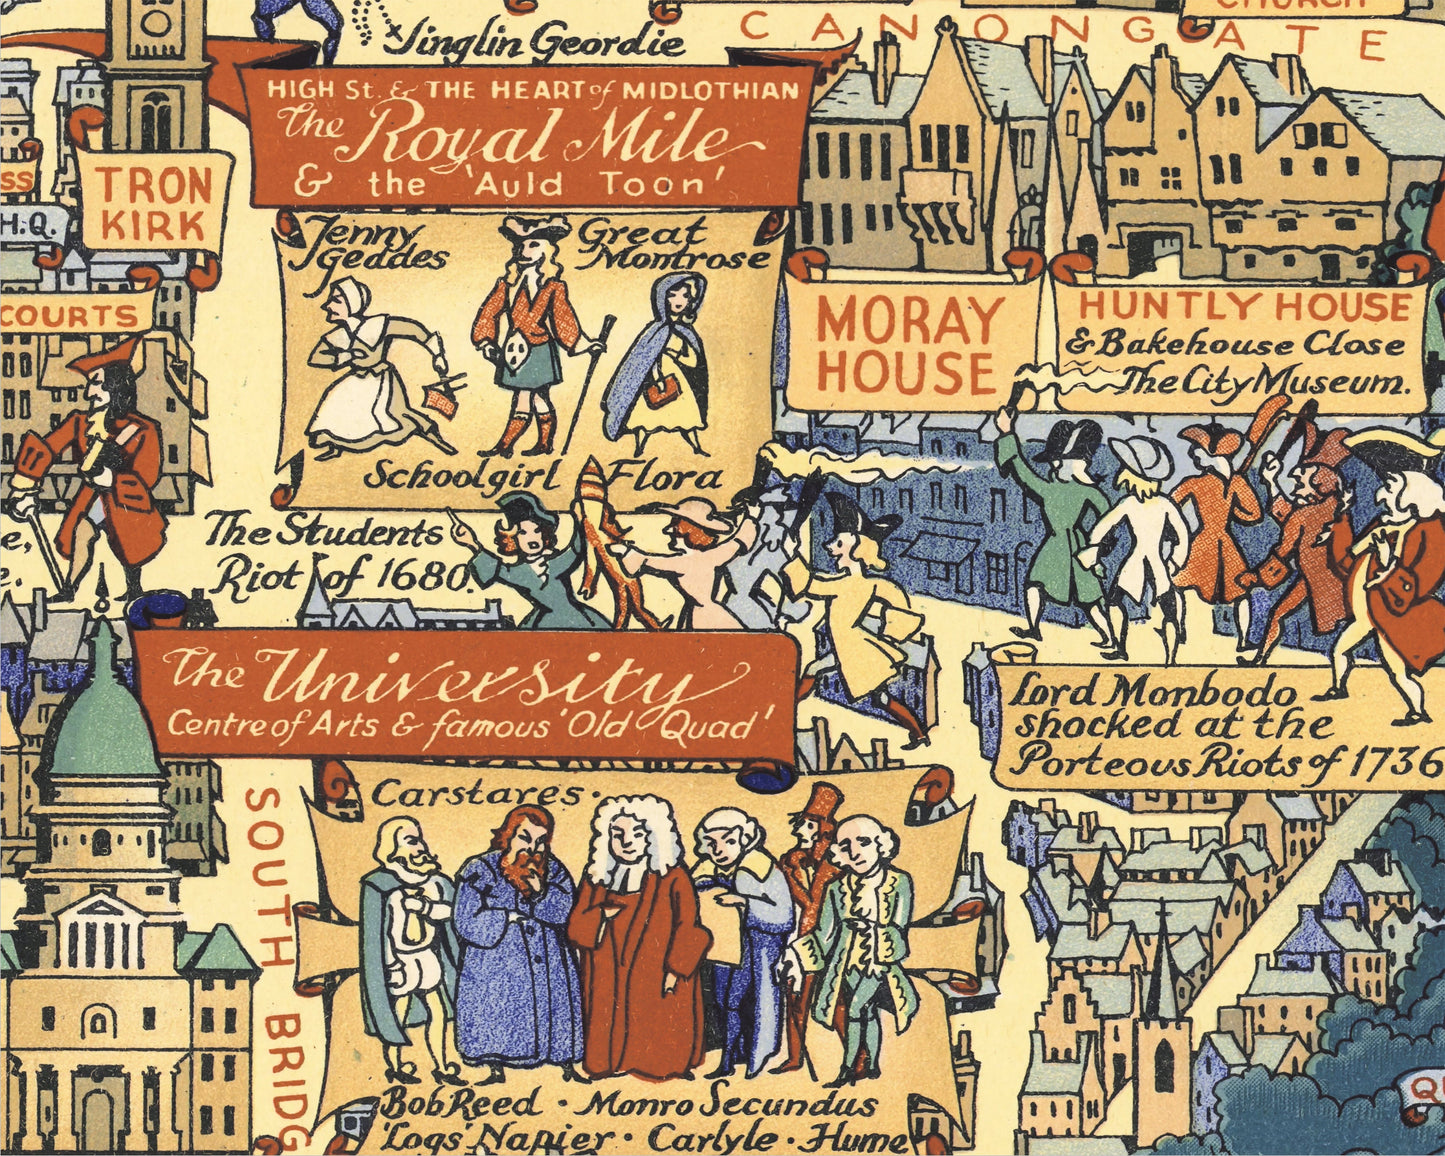 CHURCH
CANONGATE
Jinglin Geordie
HIGH St. & THE HEART of MIDLOTHIAN
The Royal Mile
& the 'Auld Toon'
TRON
KIRK
SS
H.Q.
COURTS
Jenny
Geddes
Great
Montrose
Schoolgirl
Flora
MORAY
HOUSE
HUNTLY HOUSE
& Bakehouse Close
The City Museum.
The Students
Riot of 1680.
e,
e.
The University
Centre of Arts & famous 'Old Quad'
Lord Monbodo
shocked at the
Porteous Riots of 1736
SOUTH BRIDG
Carstares.
Bob Reed · Monro Secundus
'Logs' Napier · Carlyle · Hume
Q